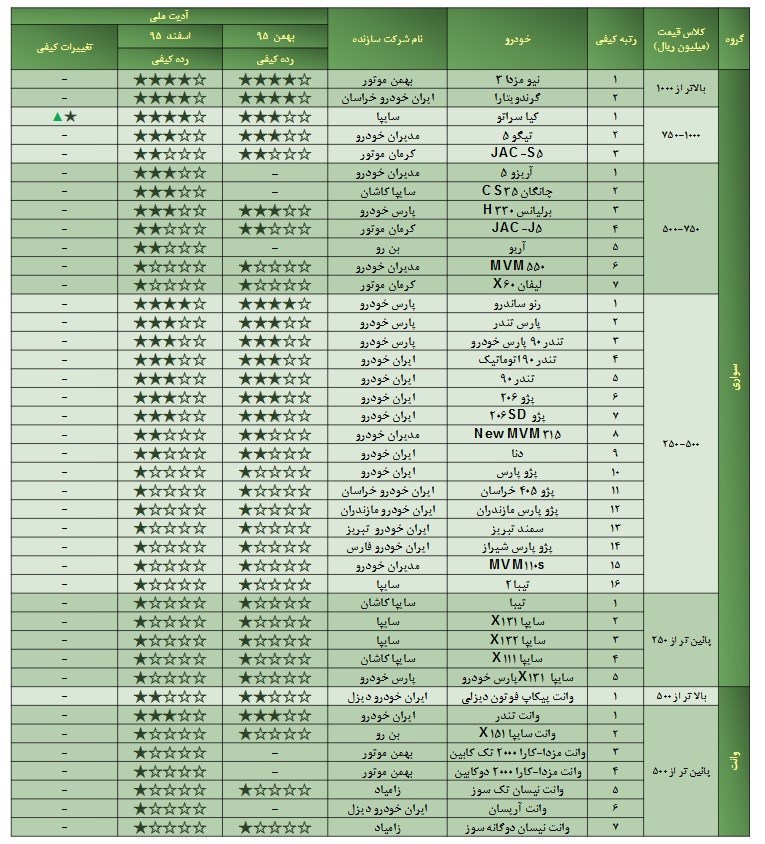 گروه
کلاس قیمت (میلیون ریال)
رتبه کیفی
خودرو
نام شرکت سازنده
آدیت ملی
بهمن ۹۵
اسفند ۹۵
تغییرات کیفی
رده کیفی
رده کیفی
سواری
بالاتر از ۱۰۰۰
۱ نیو مزدا ۳ بهمن موتور ★★★★☆ ★★★★☆ -
۲ گرندویتارا ایران خودرو خراسان ★★★★☆ ★★★★☆ -
۷۵۰-۱۰۰۰
۱ کیا سراتو سایپا ★★★☆☆ ★★★★☆ ★▲
۲ تیگو ۵ مدیران خودرو ★★★☆☆ ★★★☆☆ -
۳ JAC-S۵ کرمان موتور ★★☆☆☆ ★★☆☆☆ -
۵۰۰-۷۵۰
۱ آریزو ۵ مدیران خودرو - ★★★☆☆ -
۲ چانگان CS۳۵ سایپا کاشان - ★★★☆☆ -
۳ برلیانس H۳۳۰ پارس خودرو ★★★☆☆ ★★★☆☆ -
۴ JAC-J۵ کرمان موتور ★★☆☆☆ ★★☆☆☆ -
۵ آریو بن رو - ★★☆☆☆ -
۶ MVM۵۵۰ مدیران خودرو ★☆☆☆☆ ★☆☆☆☆ -
۷ لیفان X۶۰ کرمان موتور ★☆☆☆☆ ★☆☆☆☆ -
۲۵۰-۵۰۰
۱ رنو ساندرو پارس خودرو ★★★★☆ ★★★★☆ -
۲ پارس تندر پارس خودرو ★★★☆☆ ★★★☆☆ -
۳ تندر ۹۰ پارس خودرو پارس خودرو ★★★☆☆ ★★★☆☆ -
۴ تندر ۹۰ اتوماتیک ایران خودرو ★★★☆☆ ★★★☆☆ -
۵ تندر ۹۰ ایران خودرو ★★★☆☆ ★★★☆☆ -
۶ پژو ۲۰۶ ایران خودرو ★★★☆☆ ★★★☆☆ -
۷ پژو ۲۰۶SD ایران خودرو ★★★☆☆ ★★★☆☆ -
۸ New MVM۳۱۵ مدیران خودرو ★★☆☆☆ ★★☆☆☆ -
۹ دنا ایران خودرو ★★☆☆☆ ★★☆☆☆ -
۱۰ پژو پارس ایران خودرو ★☆☆☆☆ ★☆☆☆☆ -
۱۱ پژو ۴۰۵ خراسان ایران خودرو خراسان ★☆☆☆☆ ★☆☆☆☆ -
۱۲ پژو پارس مازندران ایران خودرو مازندران ★☆☆☆☆ ★☆☆☆☆ -
۱۳ سمند تبریز ایران خودرو تبریز ★☆☆☆☆ ★☆☆☆☆ -
۱۴ پژو پارس شیراز ایران خودرو فارس ★☆☆☆☆ ★☆☆☆☆ -
۱۵ MVM۱۱۰s مدیران خودرو ★☆☆☆☆ ★☆☆☆☆ -
۱۶ تیبا ۲ سایپا ★☆☆☆☆ ★☆☆☆☆ -
پائین تر از ۲۵۰
۱ تیبا سایپا کاشان ★☆☆☆☆ ★☆☆☆☆ -
۲ سایپا X۱۳۱ سایپا ★☆☆☆☆ ★☆☆☆☆ -
۳ سایپا X۱۳۲ سایپا ★☆☆☆☆ ★☆☆☆☆ -
۴ سایپا X۱۱۱ سایپا کاشان ★☆☆☆☆ ★☆☆☆☆ -
۵ سایپا X۱۳۱پارس خودرو پارس خودرو ★☆☆☆☆ ★☆☆☆☆ -
وانت
بالا تر از ۵۰۰
۱ وانت پیکاپ فوتون دیزلی ایران خودرو دیزل ★★☆☆☆ ★★☆☆☆ -
پائین تر از ۵۰۰
۱ وانت تندر ایران خودرو ★★★☆☆ ★★★☆☆ -
۲ وانت سایپا X۱۵۱ بن رو ★☆☆☆☆ ★☆☆☆☆ -
۳ وانت مزدا-کارا ۲۰۰۰ تک کابین بهمن موتور - ★☆☆☆☆ -
۴ وانت مزدا-کارا ۲۰۰۰ دوکابین بهمن موتور - ★☆☆☆☆ -
۵ وانت نیسان تک سوز زامیاد ★☆☆☆☆ ★☆☆☆☆ -
۶ وانت آریسان ایران خودرو دیزل - ★☆☆☆☆ -
۷ وانت نیسان دوگانه سوز زامیاد ★☆☆☆☆ ★☆☆☆☆ -